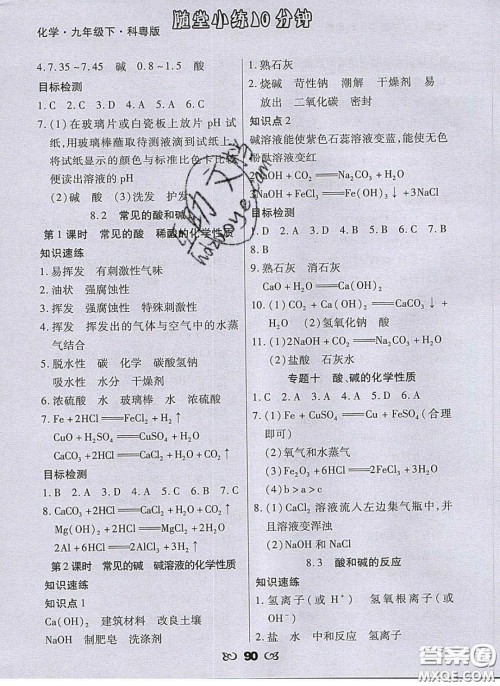 化学·九年级下·科粤版
随堂小练10分钟
4.7.35～7.45 碱 0.8～1.5 酸
目标检测
1.C 2.C 3.D 4.A 5.C 6.A
7.(1)在玻璃片或白瓷板上放片 pH 试
纸,用玻璃棒蘸取待测液滴到试纸上,
将试纸显示的颜色与标准比色卡比较,
便读出溶液的 pH
(2)碱 酸 (3)洗发 护发
8.2 常见的酸和碱
第1课时 常见的酸 稀酸的化学性质
知识速练
1.易挥发 有刺激性气味
2.油状 强腐蚀性
3.挥发 强腐蚀性 特殊刺激性
4.挥发 挥发出的气体与空气中的水蒸
气结合
5.脱水性 碳 化学 碳酸氢钠
吸水性 水分 干燥剂
6.浓硫酸 水 玻璃棒 水 浓硫酸
7.Fe+2HCl═══FeCl₂+H₂↑
CuO+H₂SO₄═══CuSO₄+H₂O
CaCO₃+2HCl═══CaCl₂+H₂O+CO₂↑
目标检测
1.B 2.A 3.D 4.A 5.D 6.C 7.D
8.CaCO₃+2HCl═══CaCl₂+H₂O+CO₂↑
Mg(OH)₂+2HCl═══MgCl₂+2H₂O
2Al+6HCl═══2AlCl₃+3H₂↑
第2课时 常见的碱 碱溶液的化学性质
知识速练
知识点1
Ca(OH)₂ 建筑材料 改良土壤
NaOH 制肥皂 洗涤剂
1.熟石灰
2.烧碱 苛性钠 潮解 干燥剂 易
放出 二氧化碳 密封
知识点2
碱溶液能使紫色石蕊溶液变蓝,能使无色
酚酞溶液变红
2NaOH+CO₂═══Na₂CO₃+H₂O
3NaOH+FeCl₃═══Fe(OH)₃↓+3NaCl
目标检测
1.B 2.B 3.A 4.D 5.C 6.D
7.D 8.B
9.熟石灰 消石灰
CaO+H₂O═══Ca(OH)₂
10.(1)CO₂+Ca(OH)₂═══CaCO₃↓+
H₂O (2)氢氧化钠 酸
11.(1)CO₂+Ca(OH)₂═══CaCO₃↓+H₂O
(2)盐酸 石灰水
专题十 酸、碱的化学性质
7.(1)Fe+CuSO₄═══Cu+FeSO₄(合理
即可)
(2)氧气和水蒸气
(3)Fe₂O₃+6HCl═══2FeCl₃+3H₂O
(4)b>a>c
8.(1)CaCl₂ 溶液流入左边集气瓶中,并
且溶液变浑浊
(2)NaOH 和 NaCl
8.3 酸和碱的反应
知识速练
1.氢离子(或 H⁺) 氢氧根离子(或
OH⁻)
2.盐 水 中和反应 氢离子
90